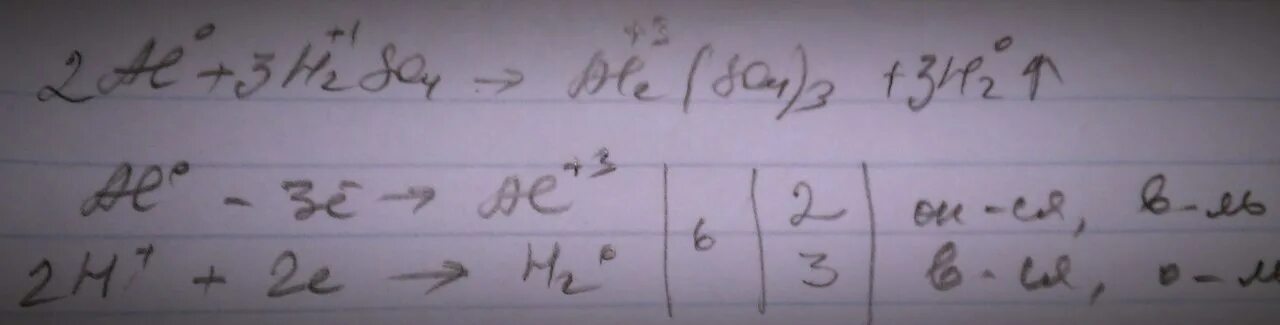 2Al⁰ + 3H₂⁺¹SO₄ → Al₂⁺³(SO₄)₃ + 3H₂⁰↑
Al⁰ - 3ē → Al⁺³ | 6 | 2 | ок-ся, в-ль
2H⁺ + 2e → H₂⁰ | | 3 | в-ся, о-л